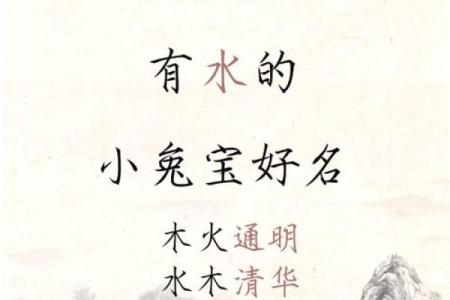 有水的
小兔宝好名
木火通明
水木清华